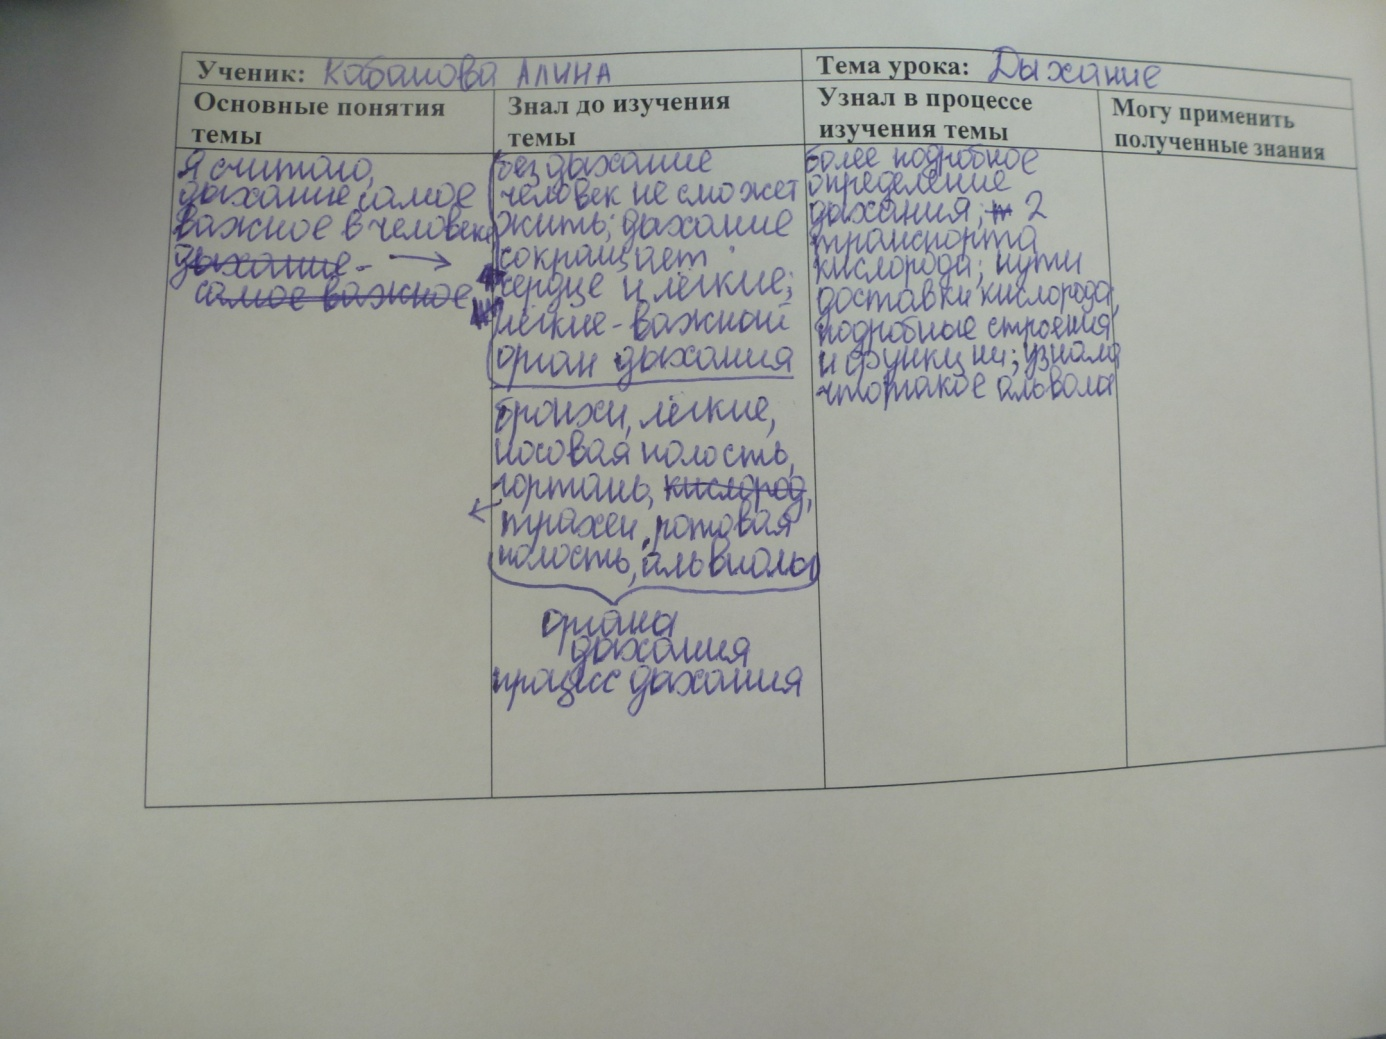 Ученик: Кабанова АЛИНА
Тема урока: Дыхание
Основные понятия
темы
Знал до изучения
темы
Узнал в процессе
изучения темы
Могу применить
полученные знания
Я считаю,
дыхание самое
важное в человеке
дыхание -
самое важное
без дыхание
человек не сможет
жить; дыхание
сокращает
сердце и лёгкие;
лёгкие - важной
орган дыхания
бронхи, лёгкие,
носовая полость,
гортань, кислород,
трахеи, ротовая
полость, альвиолы
органы
дыхания
процесс дыхания
более подробное
определение
дыхания; 2
транспорта
кислорода; пути
доставки кислорода,
подробные строения
и функции; узнала
что такое альвола